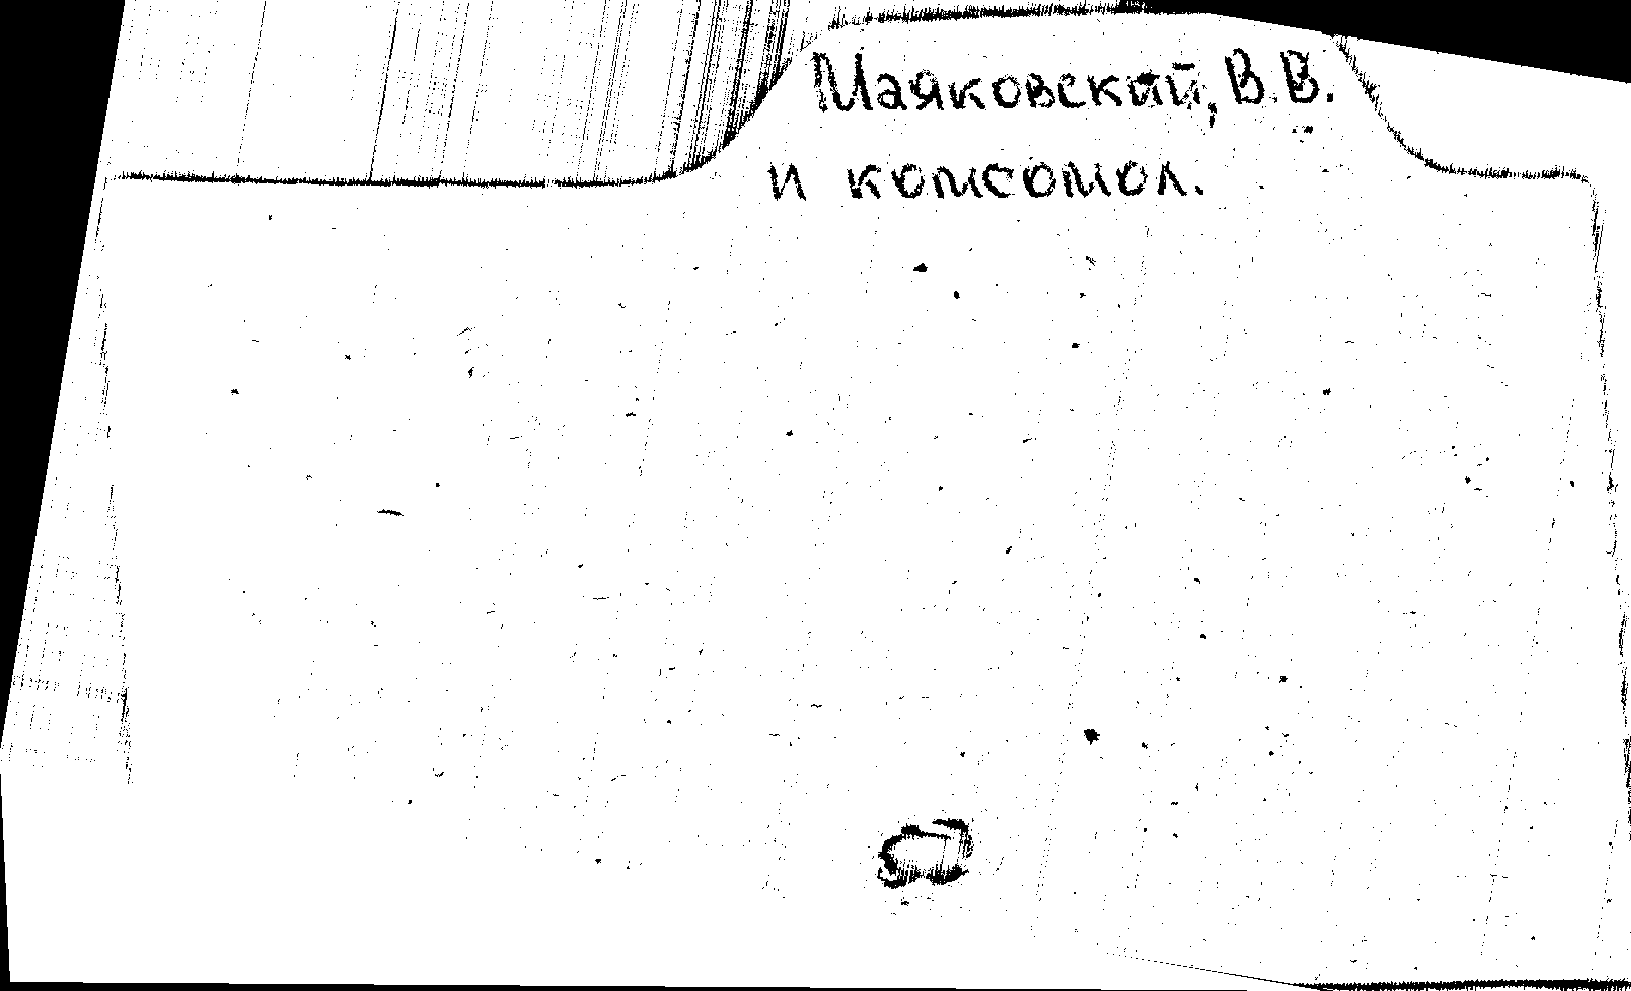 Маяковский, В.В.
и комсомол.